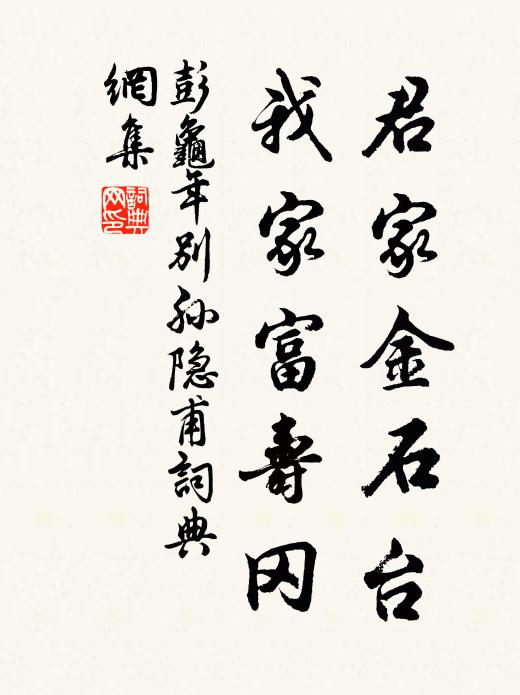 君家金石台
我家富壽冈
彭龜年别孙隐甫詞典
網集
詞典网印